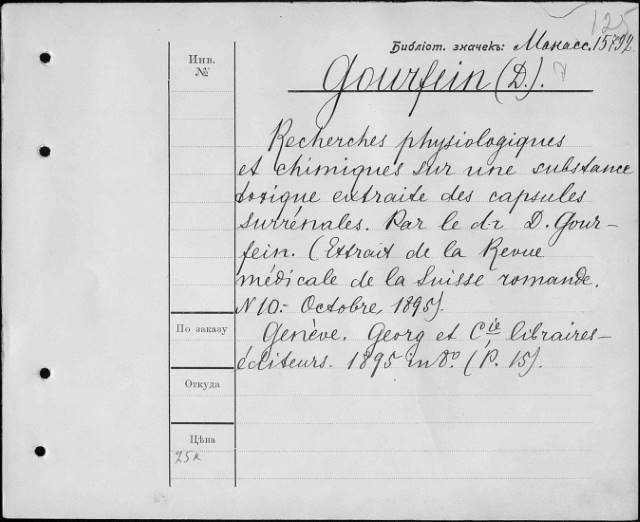 125
Библіот. значекъ: Манасс. 15792.
Инв.
№
Gourfein (D.).
Recherches physiologiques
et chimiques sur une substance
toxique extraite des capsules
surrénales. Par le dr D. Gour-
fein. (Extrait de la Revue
médicale de la Suisse romande.
N 10.- Octobre, 1895).
По заказу
Genève. Georg et Cie, libraires-
éditeurs. 1895 in 8º. (P. 15).
Откуда
Цѣна
25к